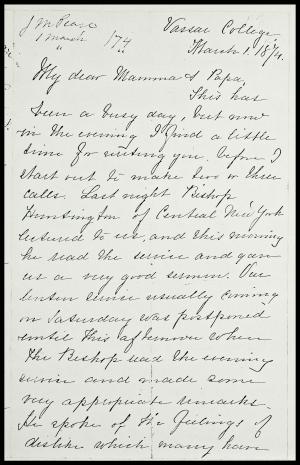 J M Pease
1 March /74
"
Vassar College
March 1. 1874.
My dear Mamma & Papa,
This has
been a busy day, but now
in the evening I find a little
time for writing you before I
start out to make two or three
calls. Last night Bishop
Huntington of Central New York
lectured to us, and this morning
he read the service and gave
us a very good sermon. Our
lenten service usually coming
on Saturday was postponed
until this afternoon when
the Bishop read the evening
service and made some
very appropriate remarks.
He spoke of the feelings of
dislike which many have